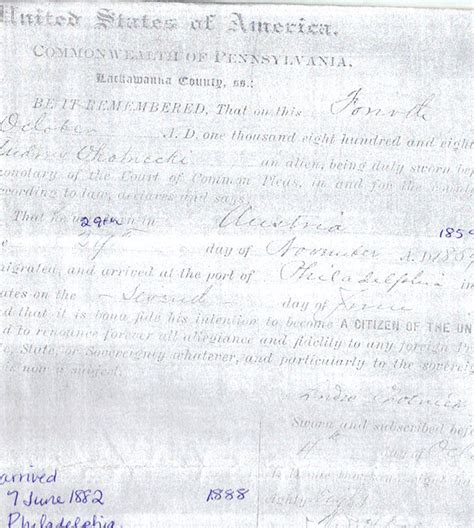 United States of America.
COMMONWEALTH OF PENNSYLVANIA.
Lackawanna County, ss.:
BE IT REMEMBERED, That on this Fourth
October A. D. one thousand eight hundred and eight
an alien, being duly sworn
onotary of the Court of Common Pleas, in and for the
ccording to law, declares and says:
That he was born in Austria
29th 1859
day of November A. D. 185
migrated, and arrived at the port of Philadelphia in
ates on the Seventh day of June
d that it is bona fide his intention to become A CITIZEN OF THE UN
d to renounce forever all allegiance and fidelity to any foreign
State, or Sovereignty whatever, and particularly to the sovere
is now a subject.
Sworn and subscribed bef
day of
arrived
7 June 1882 1888
Philadelphia